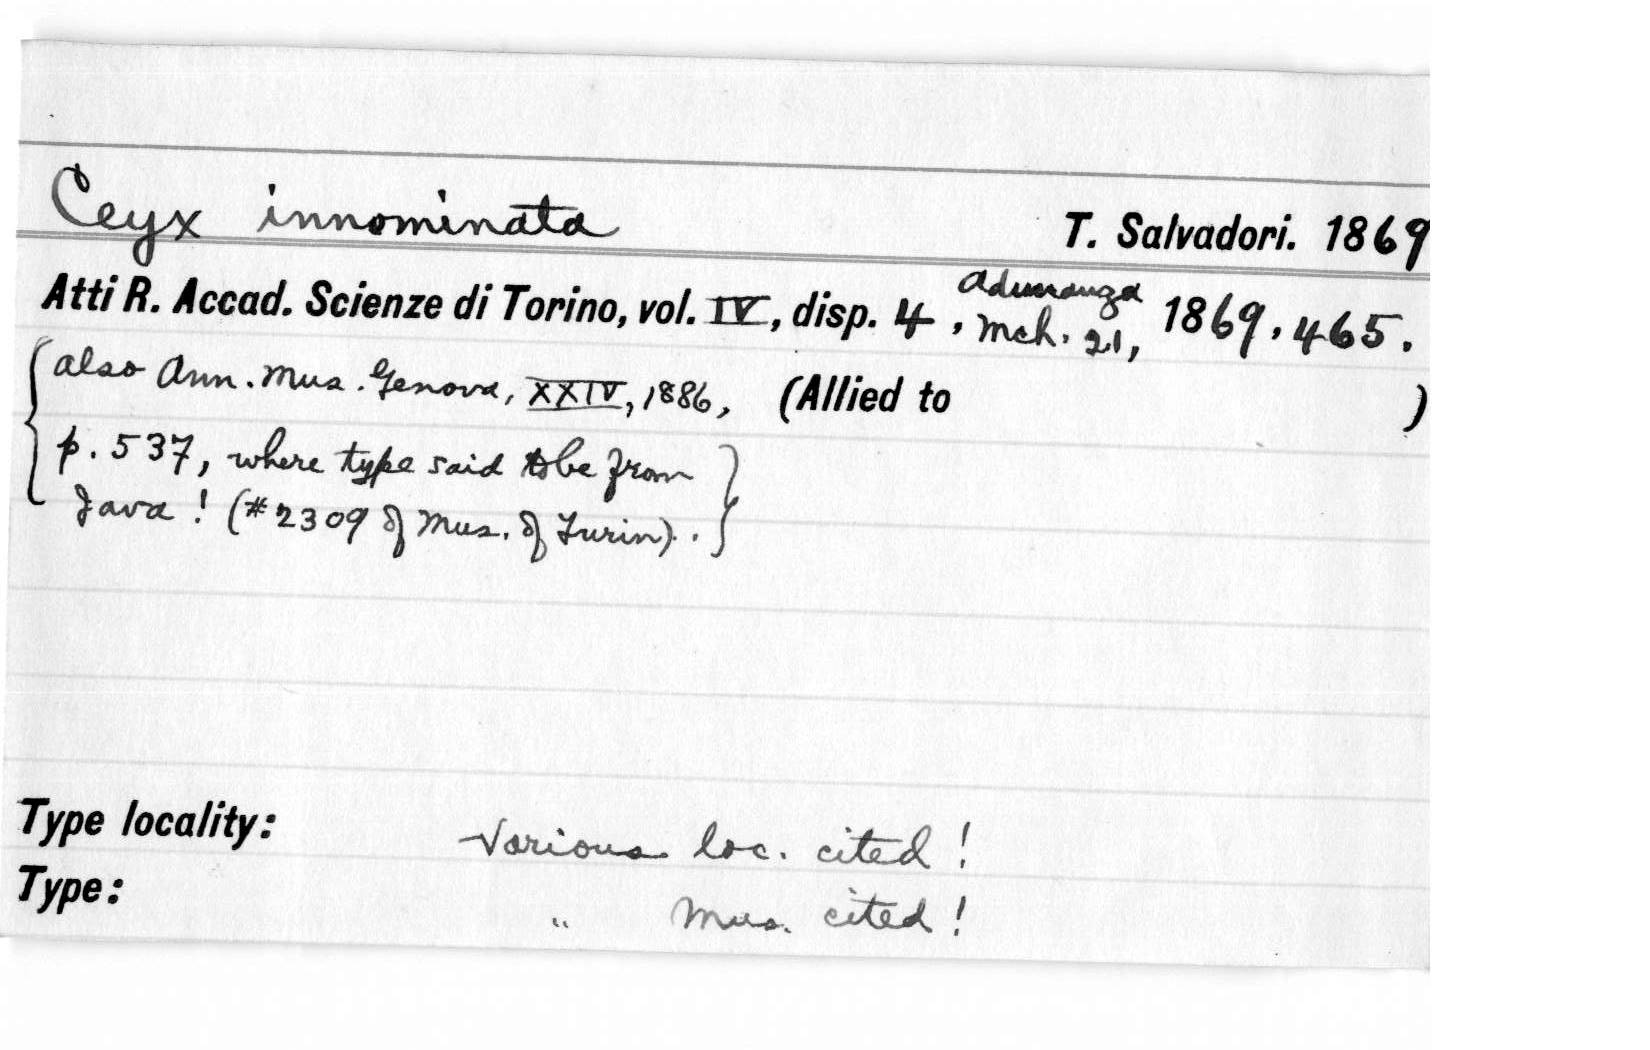 Ceyx innominata T. Salvadori. 1869
Atti R. Accad. Scienze di Torino, vol. IV, disp. 4, Adunanza Mch. 21, 1869, 465.
{also Ann. Mus. Genova, XXIV, 1886, (Allied to )
p. 537, where type said to be from
Java! (#2309 of Mus. of Turin). .}
Type locality: Various loc. cited!
Type: " Mus. cited!